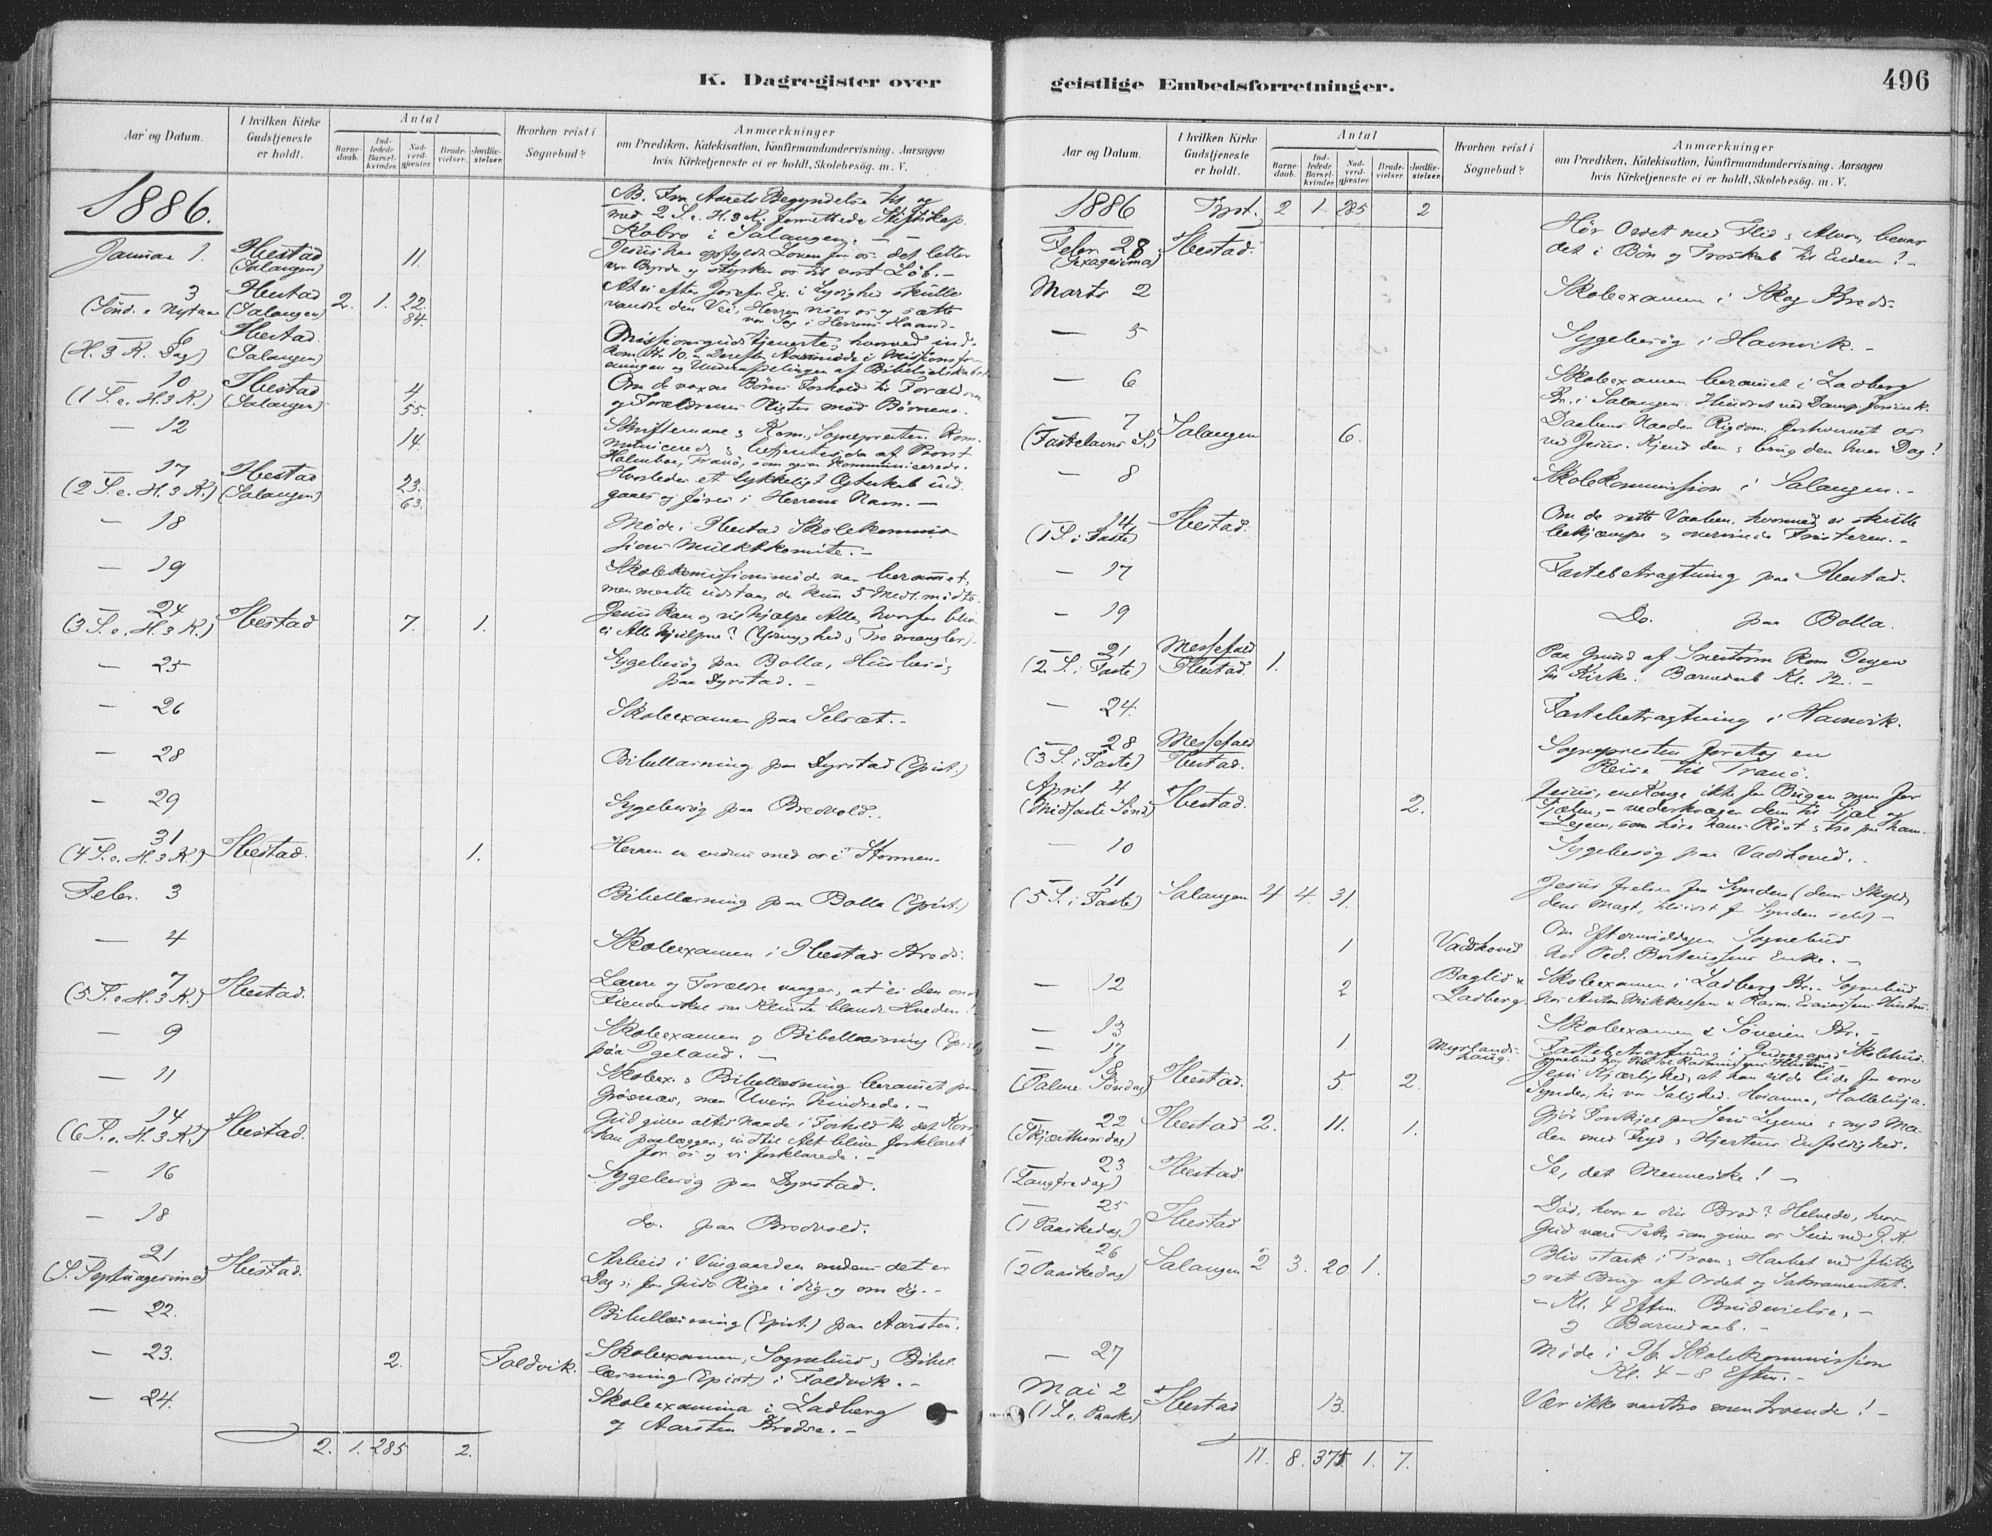 K. Dagregister over
Aar og Datum.
I hvilken Kirke Gudstjeneste er holdt.
Antal
Barnedaab.
Indledede Barselkvinder.
Nadverdgjester
Brudevielser.
Jordfæstelser.
Hvorhen reist i Sognebud?
Anmærkninger
om Prædiken, Katekisation, Konfirmandundervisning. Aarsagen
hvis Kirketjeneste ei er holdt, Skolebesøg. m. V.
1886.
NB. Fra Aarets Begyndelse til og
med 2 S. e. H. 3 K. forrettede Stiftskap.
Kobro i Salangen. —
Januar 1. Ibestad (Salangen) 11. Jesus har opfyldt Loven for os. det letter
vor Byrde og styrker os til vort Løb. —
— 3 (Sønd. e Nytaar Ibestad (Salangen) 2. 1. 22. 84. At vi efter Josefs Ex. i Lydighed skulle
vandre den Vei, Herren viser os og sætte
vor Sag i Herrens Haand. —
— 6 (H. 3 K. Dag) Ibestad. (Salangen) Missionsgudstjeneste, hvorved
— 10 (1 S. e. H. 3 K.) Ibestad (Salangen) 4 55. Om de voxne Børns Forhold til Forældrene
og Forældrenes Pligter mod Børnene.
— 12 14. Skriftemaal & Kom. Sognepresten kom
municerede & betjentes da af Provst
Holmboe, Tranø, som ogsaa kommunicerede.
— 17 (2 S. e. H. 3 K.) Ibestad (Salangen) 23. 63. Hvorledes et lykkeligt Ægteskab ind
gaaes og føres i Herrens Navn. —
— 18 Møde i Ibestad Skolekommis
sion
— 19 Skolekomissionsmøde var berammet,
men maatte udstaa, da kun 3 Medl. mødte.
— 24 (3 S. e. H. 3 K.) Ibestad 7. 1. Jesus kan og vil hjælpe Alle, hvorfor bliver
ei Alle hjulpne? (Ydmyghed & Tro mangler).
— 25 Sygebesøg paa Bolla, Husbesøg
paa Dyrstad. —
— 26 Skoleexamen paa Selsæt. —
— 28 Bibellæsning paa Dyrstad (Epist.)
— 29 Sygebesøg paa Bredvold.
— 31 (4 S. e. H. 3 K.) Ibestad. 1. Herren er endnu med os i Stormen.
Febr. 3 Bibellæsning paa Bolla (Epist.)
— 4 Skoleexamen i Ibestad Kreds.
— 7 (5 S. e H. 3 K.) Ibestad. Lærere og Forældre vaager, at ei den onde
Fiende skal saa Klinte blandt Hveden!
— 9 Skoleexamen og Bibellæsning (Epist.)
paa Igeland. —
— 11 Skoleex. & Bibellæsning berammet paa
Grøsnæs, men Uveir hindrede. —
— 14 (6 S. e. H. 3 K.) Ibestad. Gud giver altid Naade i Forhold til det Kors
han paalægger, indtil Alt bliver forklaret
for os og vi forklarede. —
— 16 Sygebesøg paa Dyrstad.
— 18 do. paa Brodvold.
— 21 (S. Septuagesima) Ibestad. Arbeid i Viingaarden medens det er
Dag: for Guds Rige i dig og om dig. —
— 22. Bibellæsning (Epist.) paa Aarsten.
— 23. 2. Foldvik. Skoleexamen, Sognebud & Bibel
læsning (Epist.) i Foldvik. —
— 24. Skoleexamina i Ladberg
og Aarsten Kredse. —
2. 1. 285 2.
geistlige Embedsforretninger.
496
Aar og Datum.
I hvilken Kirke Gudstjeneste er holdt.
Antal
Barnedaab.
Indledede Barselkvinder.
Nadverdgjester
Brudevielser.
Jordfæstelser.
Hvorhen reist i Sognebud?
Anmærkninger
om Prædiken, Katekisation, Konfirmandundervisning. Aarsagen
hvis Kirketjeneste ei er holdt, Skolebesøg. m. V.
1886 Tpst. 2 1. 285 2
Febr. 28 (Sexagesima) Ibestad. Hør Ordet med Flid & Alvor, bevar
det i Bøn og Troskab til Enden! —
Marts 2 Skoleexamen i Skog Kreds.
— 5 Sygebesøg i Hamnvik. —
— 6 Skoleexamen berammet i Ladberg
Kr. i Salangen.
— 7 (Fastelavns S.) Salangen 6. Daabens Naades Rigdom forhvervet os
ved Jesus. Kjend den & brug den hver Dag!
— 8 Skolekommission i Salangen. —
— 14 (1 S. i Faste) Ibestad. Om de rette Vaaben, hvormed vi skulle
bekjæmpe og overvinde Fristeren. —
— 17 Fastebetragtning paa Ibestad.
— 19 Do. paa Bolla.
— 21 (2 S. i Faste) Messefald Ibestad. 1. Paa Grund af Snestorm kom Ingen
til Kirke. Barnedaab Kl. 12. —
— 24. Fastebetragtning i Hamnvik.
— 28 (3 S. i Faste) Messefald Ibestad. Sognepresten foretog en
Reise til Tranø.
April 4 (Midfaste Sønd.) Ibestad. 2. Jesus, en Konge ikke for Bugen men for
Sjælen, — vederkvæger dem til Sjæl og
Legem, som høre hans Røst & tro paa ham.
— 10 Sygebesøg paa Vadshoved. —
— 11 (5 S. i Faste) Salangen 4 4. 31. Jesus frelser fra Synden (dens Skyld,
dens Magt,
1 Vadshoved Om Eftermiddagen Sognebud
hos Ped. Bertheussens Enke. —
— 12 2 Baglid & Ladberg Skoleexamen i Ladberg Kr. Sognebud
hos Anton Mikkelsen & Rasm. Esaiassens Hustru.
— 13 Skoleexamen i Søveien Kr. —
— 17 1 Myrlandshaug. Fastebetragtning i
— 18 (Palme Søndag) Ibestad. 5 2. Jesu Kjærlighed, at han vilde lide for vore
Synder, er vor Salighed. Hosianna, Halleluja.
— 22 (Skjærthorsdag) Ibestad 2. 11. 1.
den med Fryd & Hjertens Enfoldighed.
— 23 (Langfredag) Ibestad Se, det Menneske! —
— 25 (1 Paaskedag) Ibestad Død, hvor er din Brod? Helvede, hvor
Gud være Tak, som giver os Seier ved J. K
— 26 (2 Paaskedag) Salangen 2 3. 20 1. Bliv stærk i Troen & Haabet ved flittig
og ret Brug af Ordet og Sakramentet.
— Kl. 4 Efterm. Brudevielse, —
& Barnedaab. —
— 27 Møde i Ib. Skolekommission
Kl. 4 – 8 Efterm. —
Mai 2 (1 S. e. Paaske) Ibestad 13. Vær ikke vantro men troende! —
11. 8. 375 1. 7.